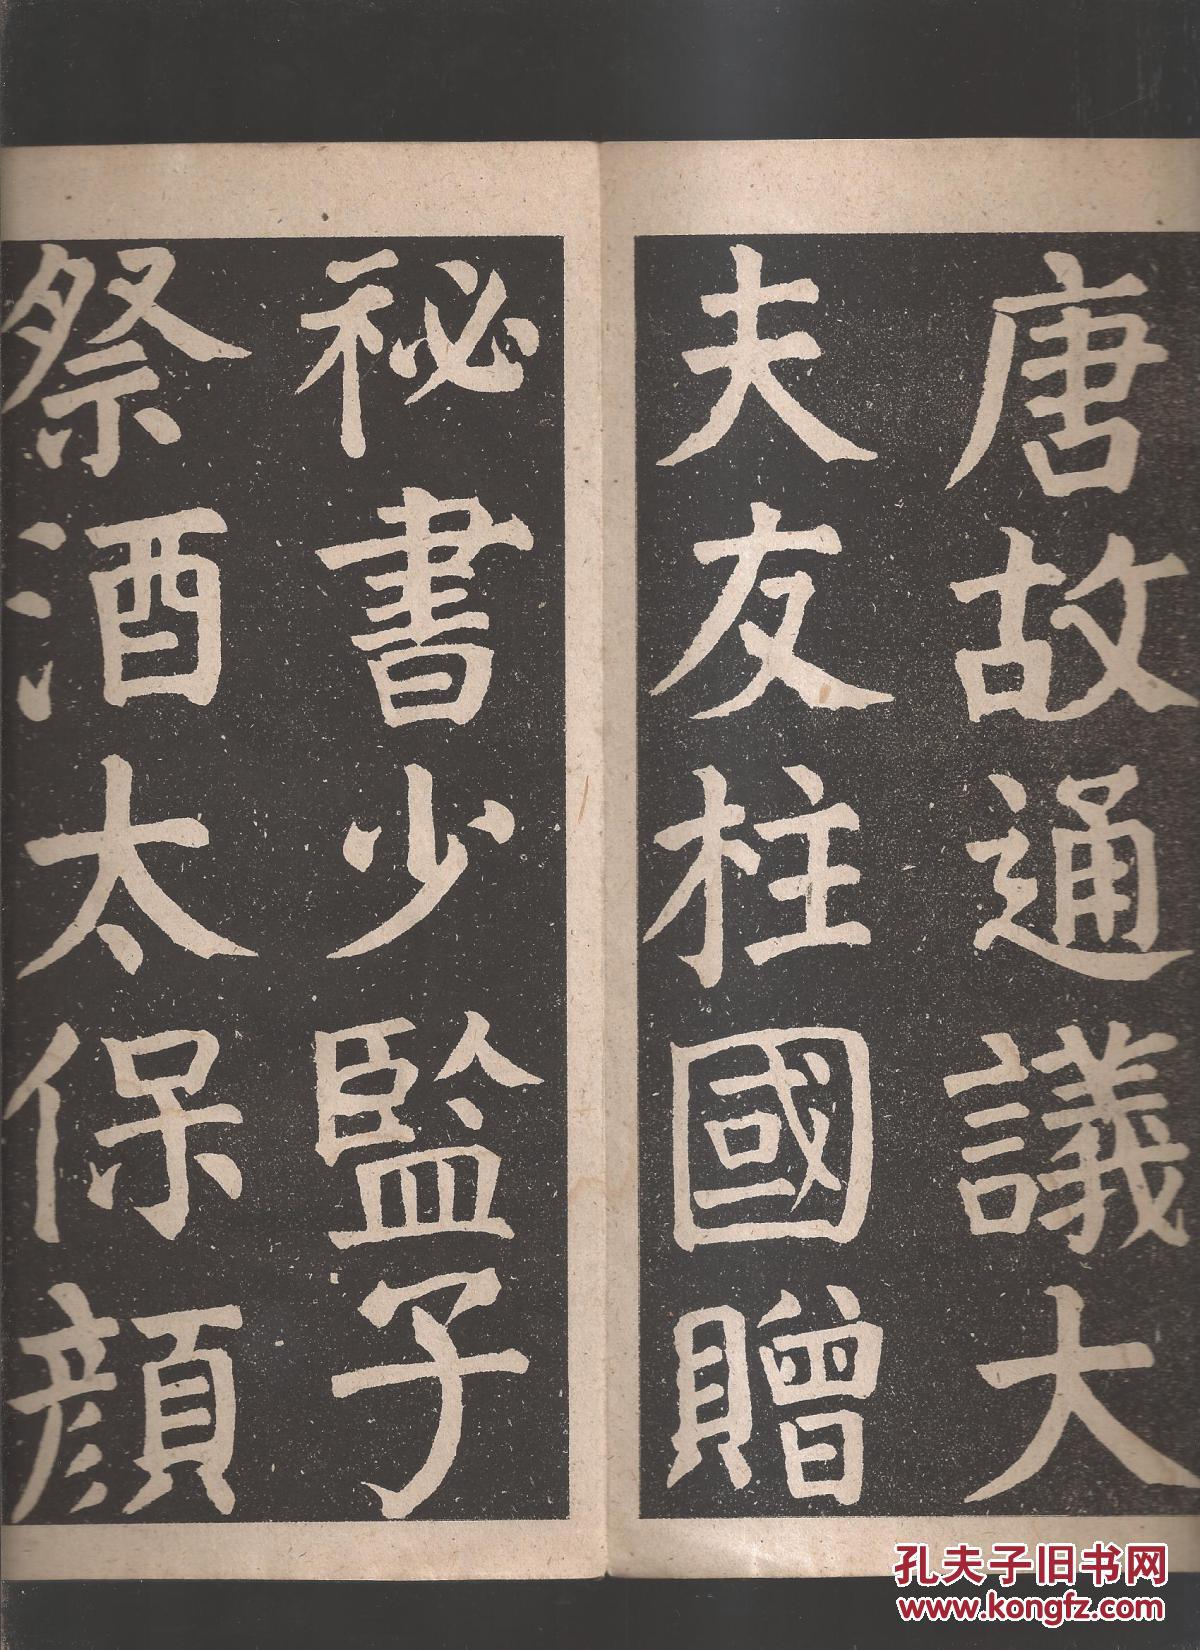 唐故通議大
夫友柱國贈
祕書少監子
祭酒太保顔
孔夫子旧书网
www.kongfz.com